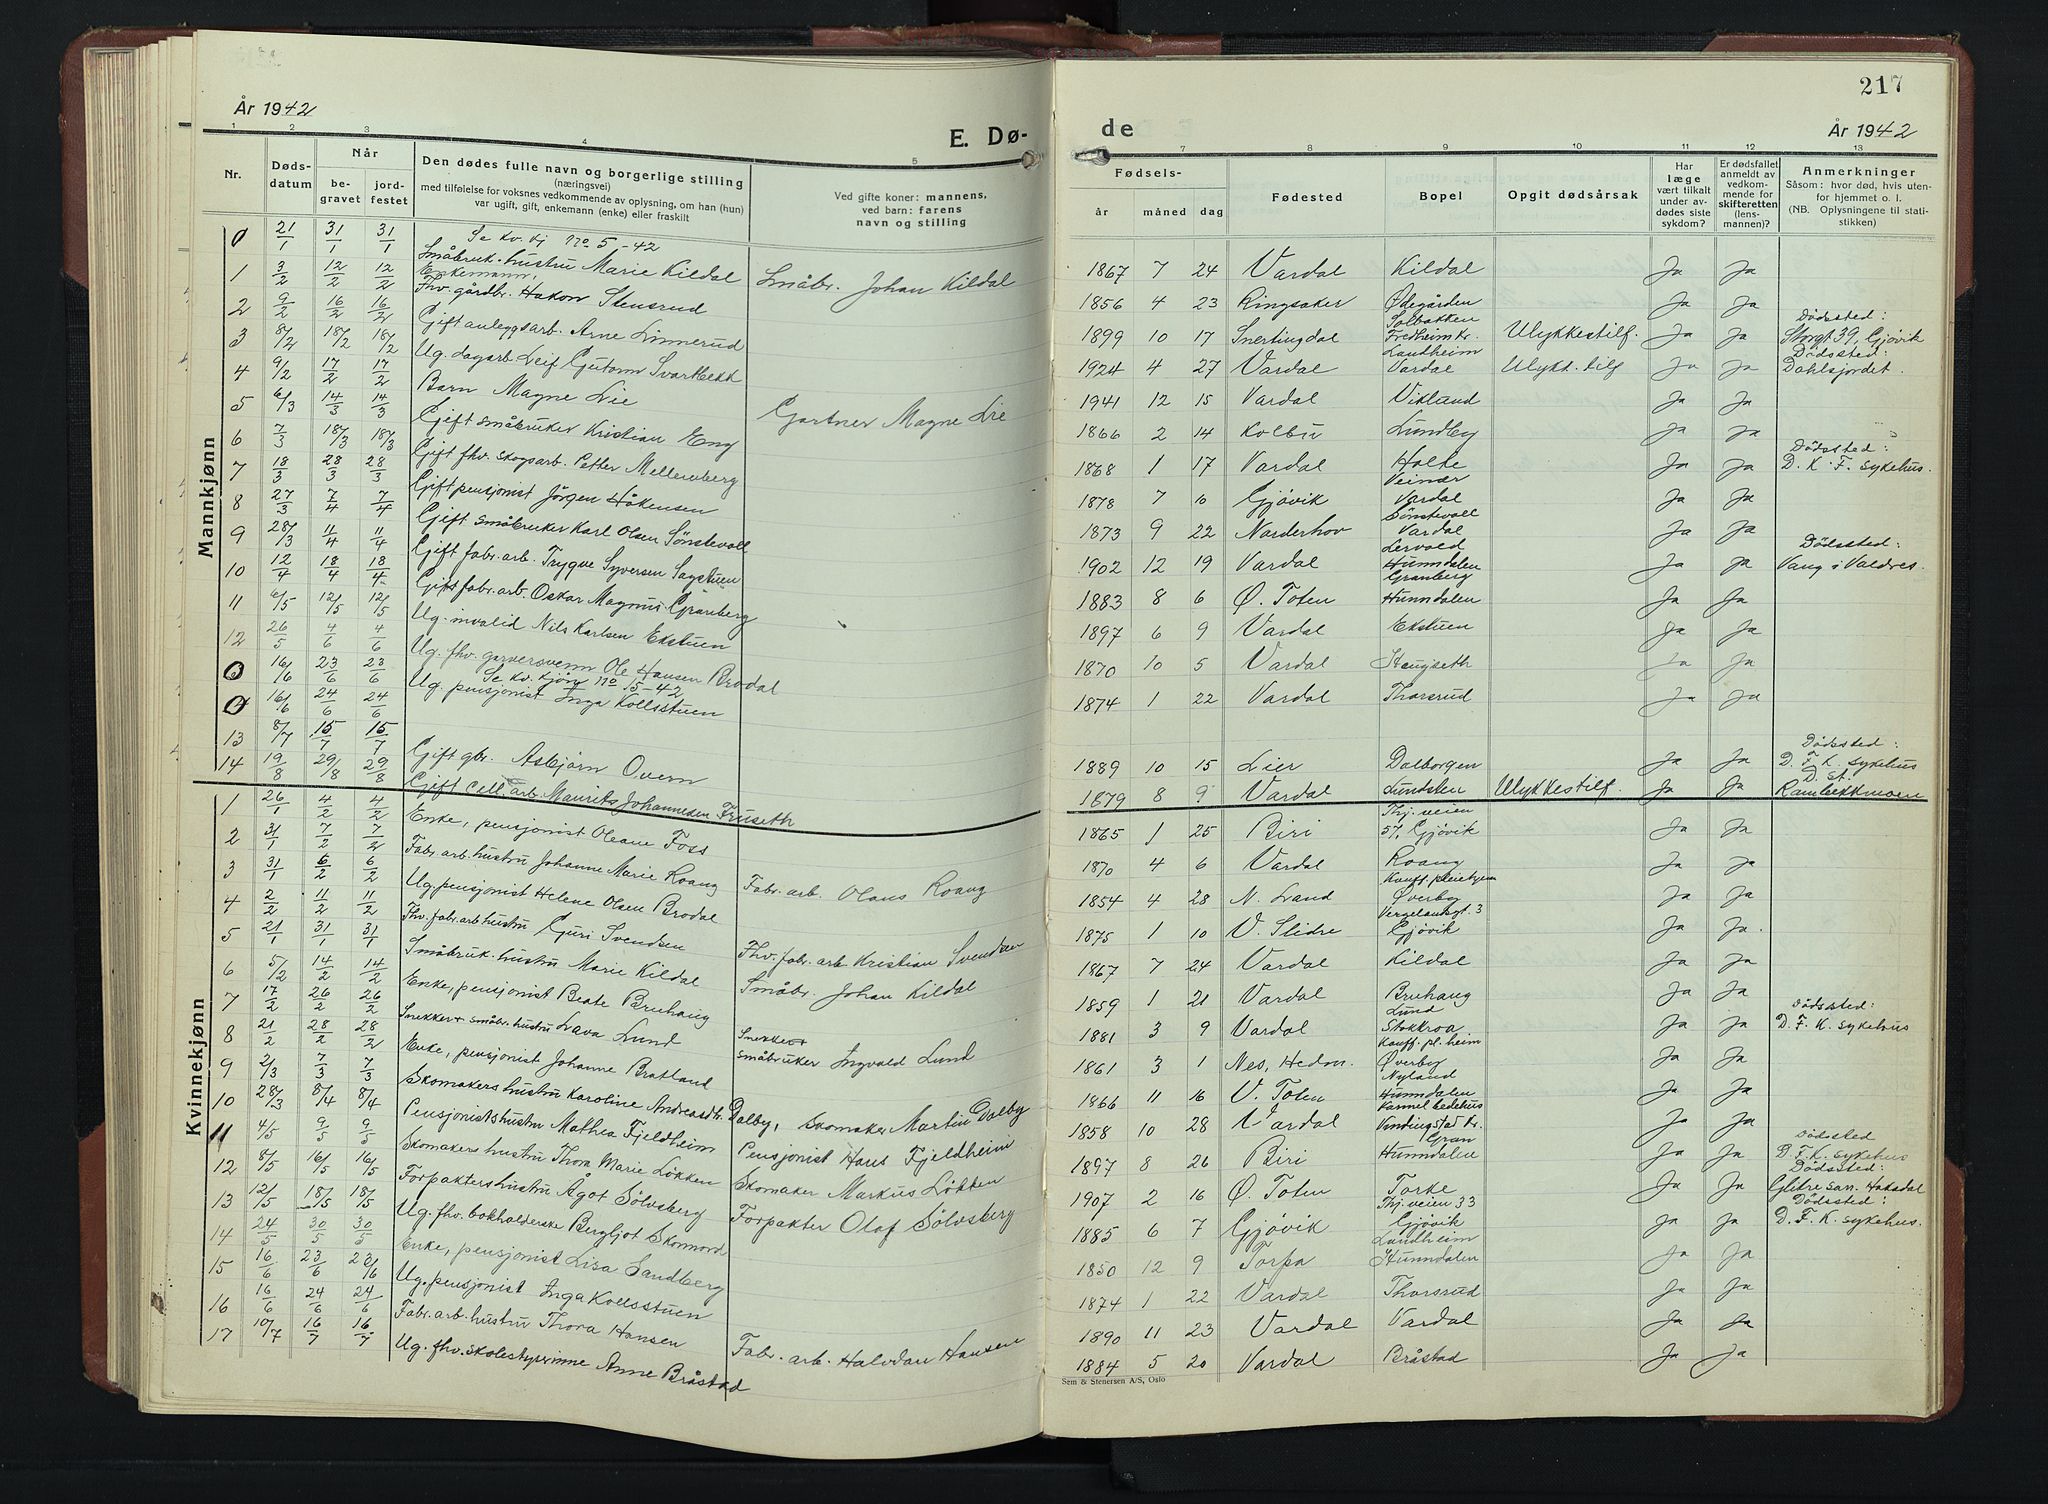 217
År 1942
E. Dø-
de
År 1942
1 2 3 4 5 7 8 9 10 11 12 13
Nr.
Døds-
datum
Når
be-
gravet
jord-
festet
Den dødes fulle navn og borgerlige stilling
(næringsvei)
med tilføielse for voksnes vedkommende av oplysning, om han (hun)
var ugift, gift, enkemann (enke) eller fraskilt
Ved gifte koner: mannens,
ved barn: farens
navn og stilling
Fødsels-
år måned dag
Fødested
Bopel
Opgit dødsårsak
Har
læge
vært tilkalt
under av-
dødes siste
sykdom?
Er dødsfallet
anmeldt av
vedkom-
mende for
skifteretten
(lens-
mannen)?
Anmerkninger
Såsom: hvor død, hvis uten-
for hjemmet o. l.
(NB. Oplysningene til stati-
stikken)
Mannkjønn
0 21/1 31/1 31/1 Se kv. kj no 5-42
Småbruk. hustru Marie Kildal Småbr. Johan Kildal 1867 7 24 Vardal Kildal Ja Ja
1 3/2 12/2 12/2 Enkemann,
Fhv. gårdbr. Hakon Stensrud 1856 4 23 Ringsaker Ødegården Ja Ja
2 9/2 16/2 16/2 Gift anleggsarb. Arne Linnerud 1899 10 17 Snertingdal Solbakken Fredheim kr. Ulykkestilf. Ja Ja Dødssted: Storgt 39, Gjøvik
3 8/2 18/2 18/2 Ug. dagarb. Leif Gutorm Svartbekk 1924 4 27 Vardal Landheim Vardal Ulykk. tilf Ja Ja Dødssted: Dahlsjordet.
4 9/2 17/2 17/2 Barn Magne Lie Gartner Magne Lie 1941 12 15 Vardal Vikland Ja Ja
5 6/3 14/3 14/3 Gift småbruker Kristian Eng 1866 2 14 Kolbu Lundby Ja Ja
6 7/3 18/3 18/3 Gift fhv. skogsarb. Petter Mellemberg 1868 1 17 Vardal Holte Ja Ja Dødssted: D. K. F. sykehus.
7 18/3 28/3 28/3 Gift pensjonist Jørgen Håkensen 1878 7 10 Gjøvik Veinær Vardal Ja Ja
8 27/3 7/4 7/4 Gift småbruker Karl Olsen Sønstevoll 1873 9 22 Norderhov Sønstevoll Vardal Ja Ja
9 28/3 11/4 11/4 Gift fabr. arb. Trygve Syversen Sagstuen 1902 12 19 Vardal Lervold Hunndalen Ja Ja Dødssted: Vang i Valdres.
10 12/4 18/4 18/4 Gift fabr. arb. Oskar Magnus Granberg 1883 8 6 Ø. Toten Granberg Hunndalen Ja Ja
11 6/5 12/5 12/5 Ug. invalid Nils Karlsen Ekstuen 1897 6 9 Vardal Ekstuen Ja Ja
12 26/5 4/6 4/6 Ug. fhv. garversvenn Ole Hansen Brodal 1870 10 5 Vardal Haugseth Ja Ja
0 16/6 23/6 23/6 Se kv. kjøn no 15-42
Ug. pensjonist Inga Kollsstuen 1874 1 22 Vardal Thorsrud Ja Ja
0 16/6 24/6 24/6
13 8/7 15/7 15/7 Gift gbr. Asbjørn Overn 1889 10 15 Lier Dalborgen Ja Ja Dødssted: D. F. K. sykehus
14 19/8 29/8 29/8 Gift cell. arb. Maurits Johannesen Fruseth 1879 8 9 Vardal Lundsten Ulykkestilf. Ja Ja D. st. Rambekkmoen
Kvinnekjønn
1 26/1 4/2 4/2 Enke, pensjonist Oleane Foss 1865 1 25 Biri Thj. veien 57, Gjøvik Ja Ja
2 31/1 7/2 7/2 Fabr. arb. hustru Johanne Marie Roang Fabr. arb. Olaus Roang 1870 4 6 Vardal Roang Ja Ja
3 31/1 6/2 6/2 Ug. pensjonist Helene Olsen Brodal 1854 4 28 N. Land Kauff. pleiehjem Øverby Ja Ja
4 2/2 11/2 11/2 Fhv. fabr. arb. hustru Guri Svendsen Fhv. fabr. arb. Kristian Svendsen 1875 1 10 V. Slidre Vergelandsgt. 3 Gjøvik Ja Ja.
5 21/1 31/1 31/1 Småbruk. hustru Marie Kildal Småbr. Johan Kildal 1867 7 24 Vardal Kildal Ja Ja
6 5/2 14/2 14/2 Enke, pensjonist Beate Bruhaug 1859 1 21 Vardal Bruhaug Ja Ja
7 17/2 26/2 26/2 Snekker + småbr. hustru Lava Lund Snekker + småbruker Ingvald Lund 1881 3 9 Vardal Lund Stokkroa Ja Ja Dødssted: D. F. K. sykehus
8 21/2 28/2 28/2 Enke, pensjonist Johanne Bratland 1861 3 1 Nes, Hedm. Kauff. pl. heim Øverby Ja Ja
9 2/3 7/3 7/3 Skomakers hustru Karoline Andreasdtr. Dalby, Skomaker Martin Dalby 1866 11 16 V. Toten Nyland Hunndalen Ja Ja
10 28/3 8/4 8/4 Pensjonists hustru Mathea Fjeldheim Pensjonist Hans Fjeldheim 1858 10 28 Vardal Karmel bedehus Vindingstad kr. Ja Ja
11 4/5 9/5 9/5 Skomakers hustru Thora Marie Løkken Skomaker Markus Løkken 1897 8 26 Biri Gran Hunndalen Ja Ja Dødssted D. F. K. sykehus
12 8/5 16/5 16/5 Forpakters hustru Ågot Sølvsberg Forpakter Olaf Sølvsberg 1907 2 16 Ø. Toten Torke Ja Ja Dødssted: Glitre san. Hakadal
13 12/5 18/5 18/5 Ug. fhv. bokholderske Bergljot Skonnord 1885 6 7 Gjøvik Thj. veien 33 Gjøvik Ja Ja Dødssted: D. F. K. sykehus.
14 24/5 30/5 30/5 Enke, pensjonist Lisa Sandberg 1850 12 9 Torpa Lundheim Hunndalen Ja Ja
15 16/6 23/6 23/6 Ug. pensjonist Inga Kollsstuen 1874 1 22 Vardal Thorsrud Ja Ja
16 16/6 24/6 24/6 Fabr. arb. hustru Thora Hansen Fabr. arb. Halvdan Hansen 1890 11 23 Vardal Vardal Ja Ja
17 10/7 16/7 16/7 Ug. fhv. skolestyrerinne Anne Bråstad 1884 5 20 Vardal Bråstad Ja Ja
Sem & Stenersen A/S, Oslo